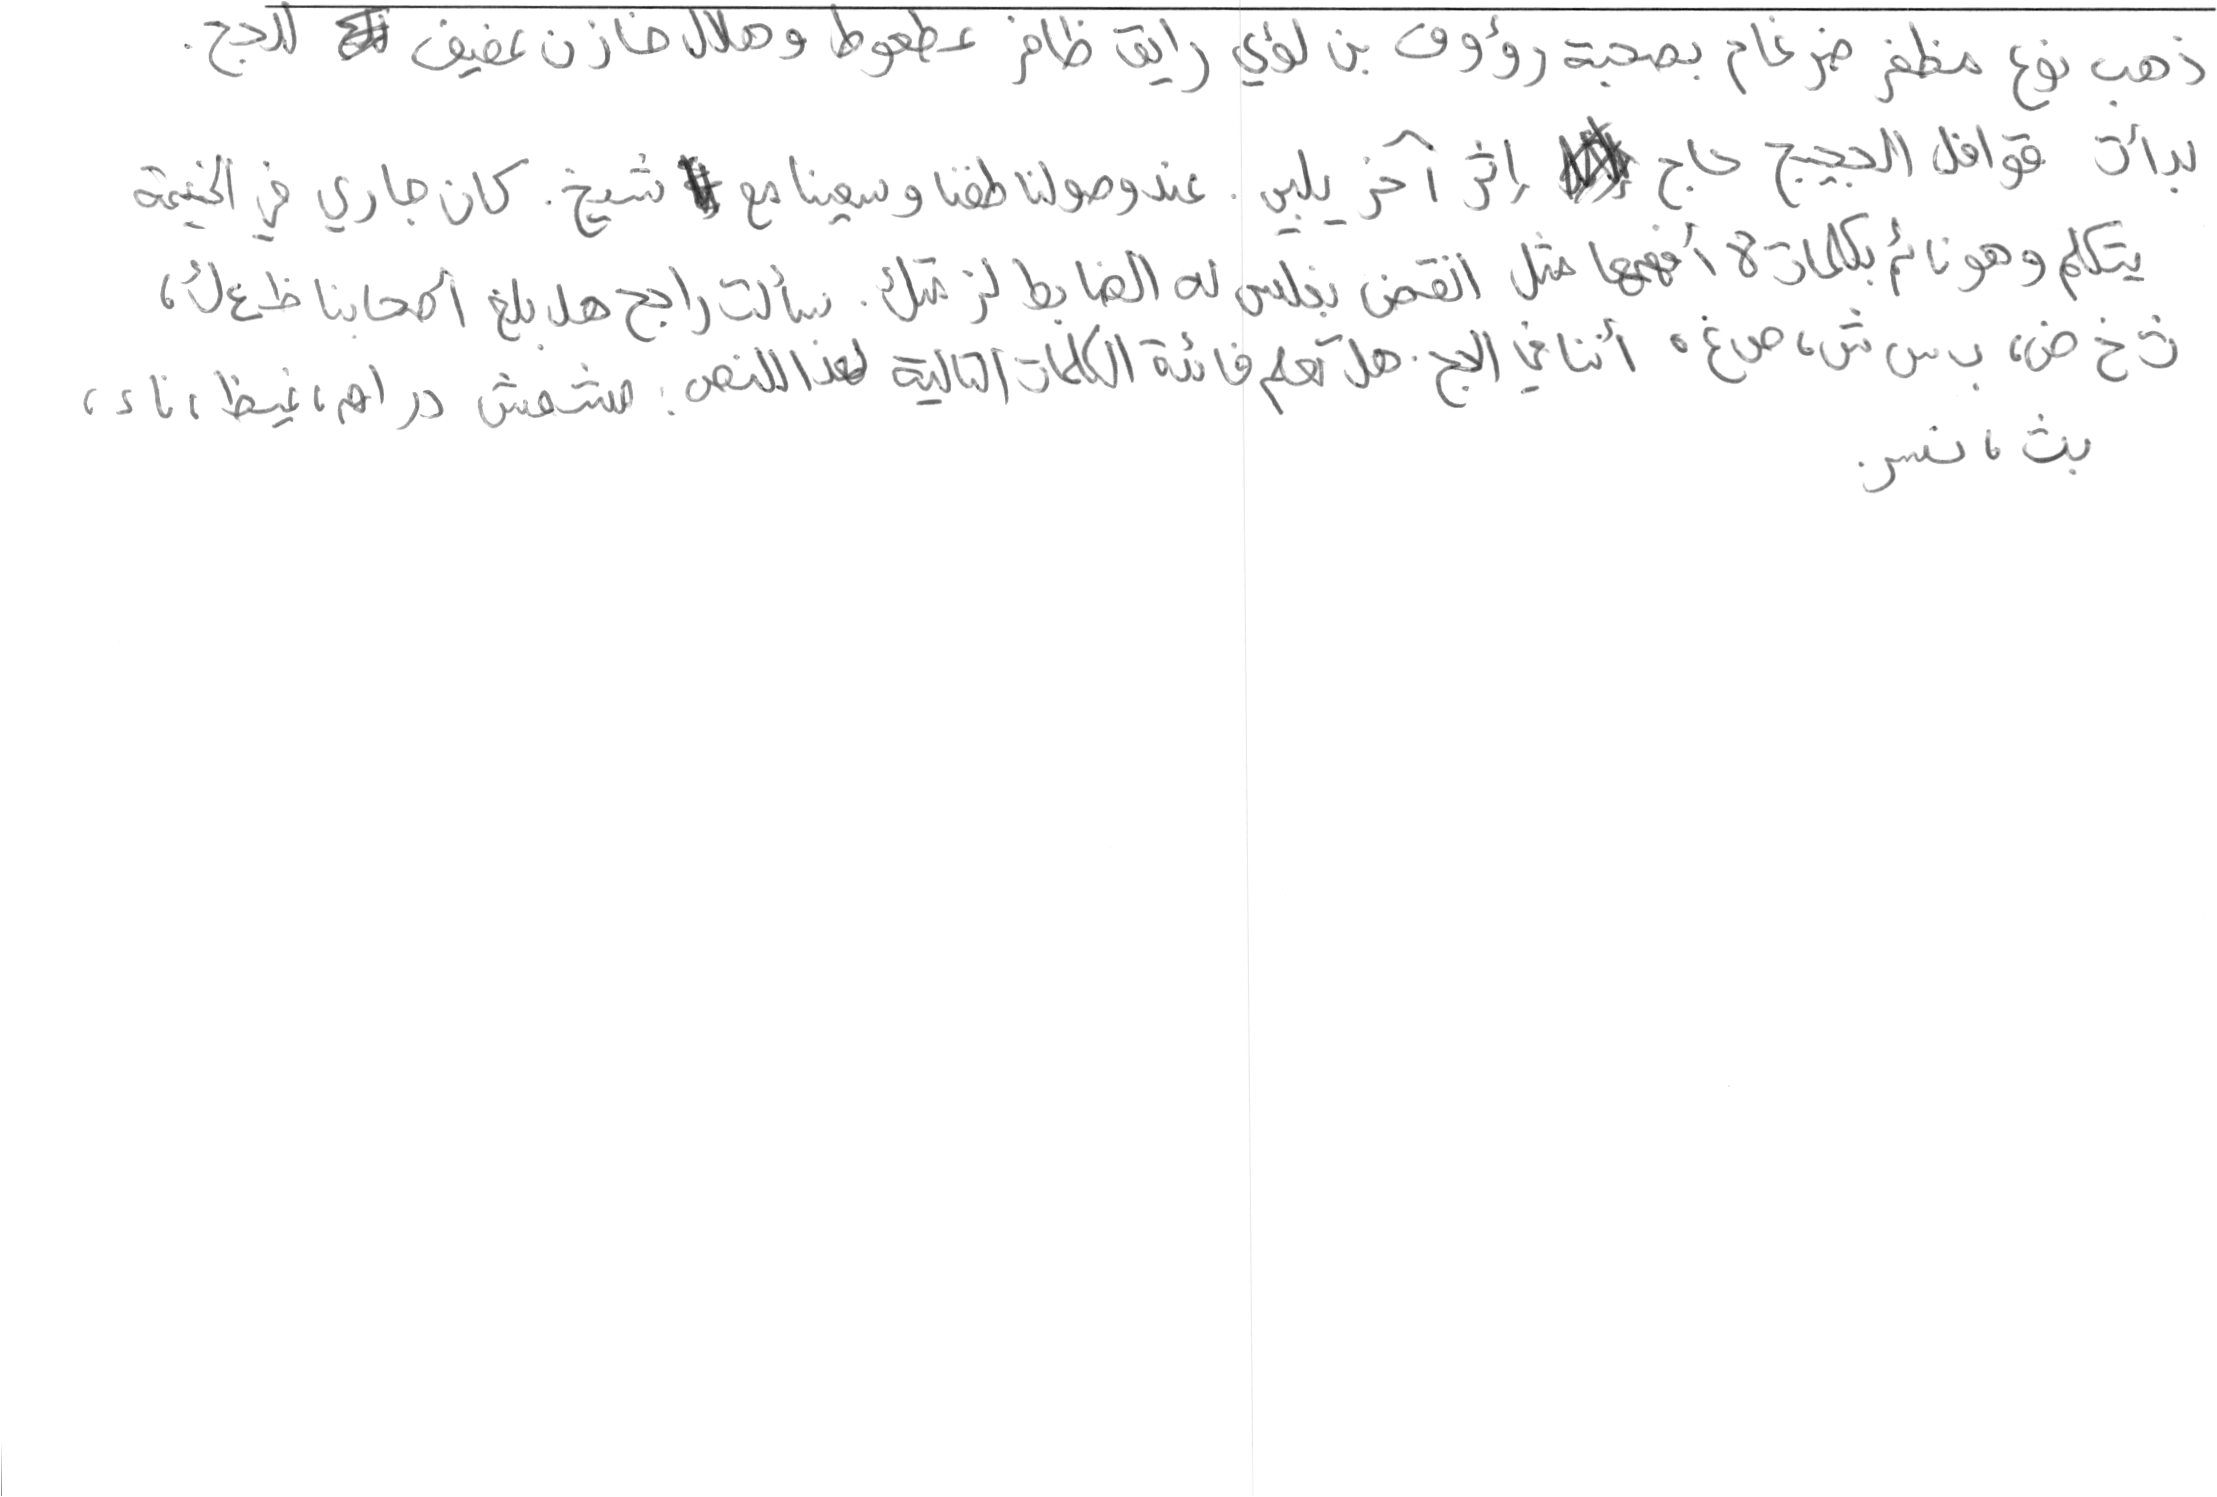 ذهب نوع مظفر ضرغام بصحبة رؤوف بن لؤي رايق ظافر عطعوط وهلال خازن عفيف للحج .
بدأت قوافل الحجيج حاج إثر آخر يلبي . عند وصولنا طفنا وسعينا مع شيخ . كان جاري في الخيمة
يتكلم وهو نائم بكلمات لا أفهمها مثل انقض بغلس له الضابط لز متك . سألت راجح هل بلغ أصحابنا ظ ع ك ،
ث خ ض ، ب س ش ، ص غ ه أننا في الحج . هل تعلم فائدة الكلمات التالية لهذا النص : مشمش دراهم ، غيظ ، ناء ،
بث ، نسر .